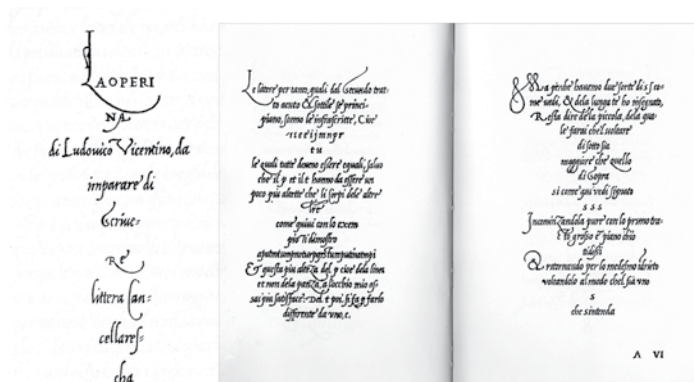 LAOPERI
NA
di Ludovico Vicentino, da
imparare di
Scriue-
RE
littera Can-
cellares-
cha
Le littere per tanto, quali dal Secundo trat-
to acuto & sottile se princi-
piano, sonno le infrascritte, Cioe
n c e i j m n p r
t u
le quali tutte deueno essere equali, saluo
che il p et il t hanno da essere un
poco piu alette che li corpi dele altre
l're
come quiui con lo exem
pio ti dimostro
Et questa piu alteza del p cioe dela linea
et non dela panza, a l'occhio mio as-
sai piu satisface: Del t poi, si fa p farlo
differente da vno, c.
Ma perche hauemo due sorte di s s co-
me vedi, & dela lunga te ho insegnato,
Resta dire dela piccola, dela qua-
le farai che'l uoltare
di sotto sia
maggiore che quello
di Sopra
si come qui vedi signato
s s s
Incominzandola pure con lo primo tra-
tto grosso e piano chio
ti dissi
& ritornando per lo medesimo adrieto
voltandolo al modo che'l sia vno
s
che s'intenda
A VI